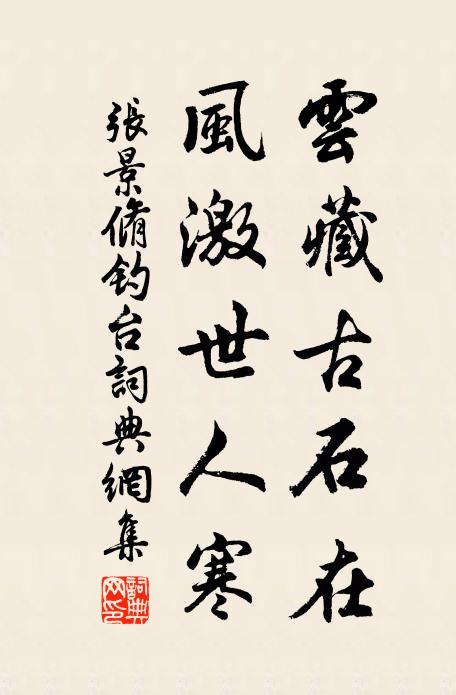 雲藏古石在
風激世人寒
張景脩釣台詞典網集
詞典網印